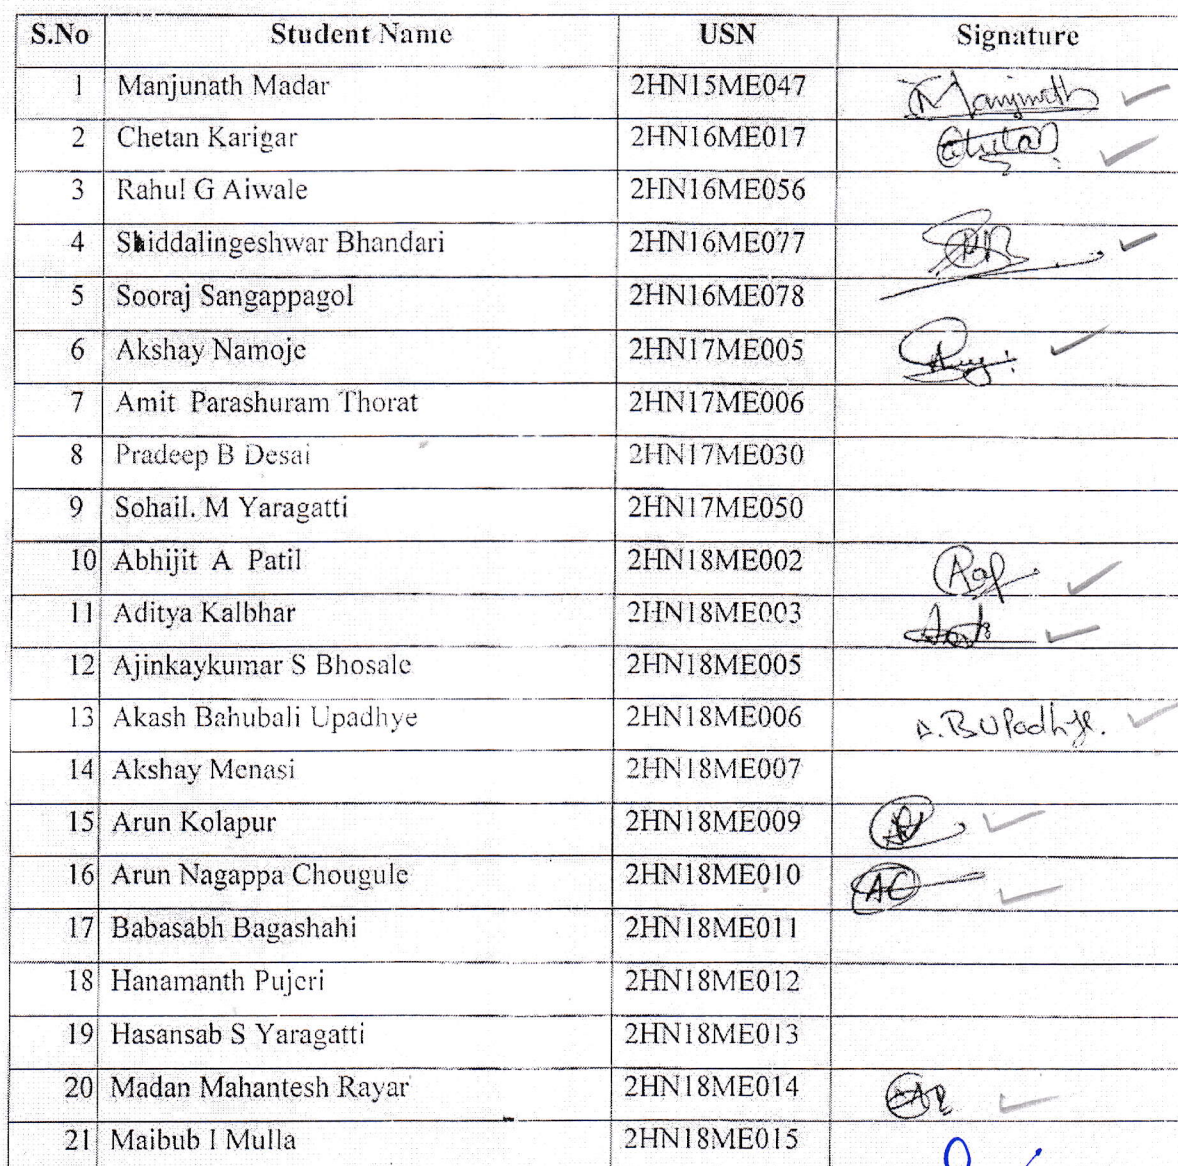 S.No Student Name USN Signature
1 Manjunath Madar 2HN15ME047 Manjunath
2 Chetan Karigar 2HN16ME017 Chetan
3 Rahul G Aiwale 2HN16ME056
4 Shiddalingeshwar Bhandari 2HN16ME077
5 Sooraj Sangappagol 2HN16ME078
6 Akshay Namoje 2HN17ME005
7 Amit Parashuram Thorat 2HN17ME006
8 Pradeep B Desai 2HN17ME030
9 Sohail. M Yaragatti 2HN17ME050
10 Abhijit A Patil 2HN18ME002 Aap
11 Aditya Kalbhar 2HN18ME003
12 Ajinkaykumar S Bhosale 2HN18ME005
13 Akash Bahubali Upadhye 2HN18ME006 A.B Upadhye.
14 Akshay Menasi 2HN18ME007
15 Arun Kolapur 2HN18ME009
16 Arun Nagappa Chougule 2HN18ME010 AC
17 Babasabh Bagashahi 2HN18ME011
18 Hanamanth Pujeri 2HN18ME012
19 Hasansab S Yaragatti 2HN18ME013
20 Madan Mahantesh Rayar 2HN18ME014
21 Maibub I Mulla 2HN18ME015